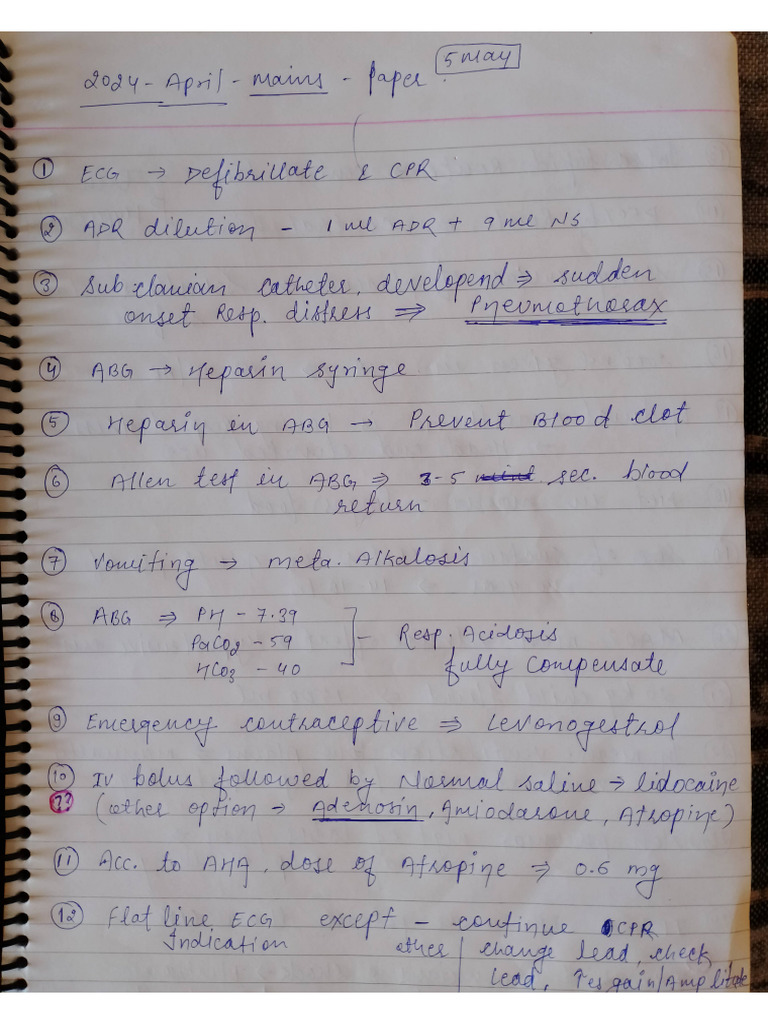 2024 - April - Mains - Paper 5 May
① ECG → Defibrillate & CPR
② ADR dilution - 1 ml ADR + 9 ml NS
③ Sub clavian catheter, developend ⇒ sudden
onset Resp. distress ⇒ Pneumothorax
④ ABG → Heparin syringe
⑤ Heparin in ABG → Prevent Blood clot
⑥ Allen test in ABG ⇒ 3-5 sec. blood
return
⑦ Vomiting → meta. Alkalosis
⑧ ABG ⇒ PH - 7.39
PaCO2 - 59
HCO3 - 40
Resp. Acidosis
fully compensate
⑨ Emergency contraceptive ⇒ Levonogestrol
⑩ IV bolus followed by Normal saline → lidocaine
?? (other option → Adenosin, Amiodarone, Atropine)
⑪ Acc. to AHA, dose of Atropine ⇒ 0.6 mg
⑫ Flat line ECG except - continue CPR
Indication other change lead, check
lead, ↑es gain/Amplitude